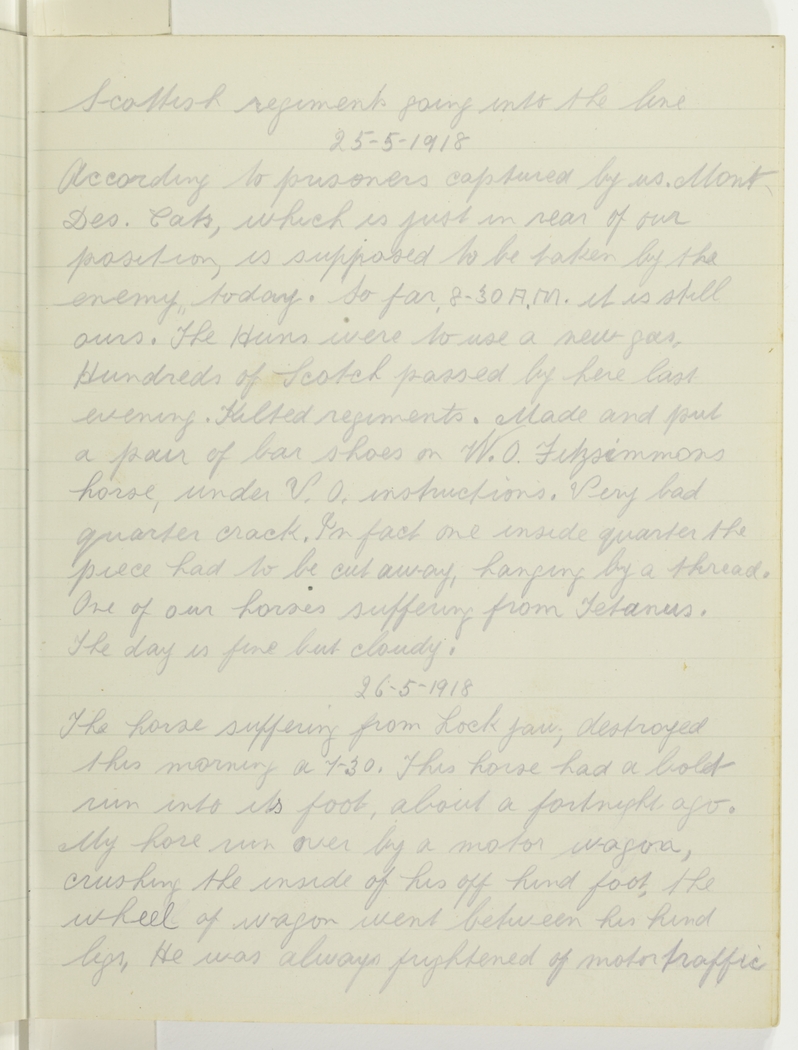 Scottish regiments going into the line
25-5-1918
According to prisoners captured by us. Mont
Des. Cats, which is just in rear of our
position, is supposed to be taken by the
enemy,, today. So far, 8-30 A.M. it is still
ours. The Huns were to use a new gas,
Hundreds of Scotch passed by here last
evening. Kilted regiments. Made and put
a pair of bar shoes on W.O. Fitzsimmons
horse, under V. O. instructions. Very bad
quarter crack. In fact one inside quarter the
piece had to be cut away, hanging by a thread.
One of our horses suffering from Tetanus.
The day is fine but cloudy.
26-5-1918
The horse suffering from Lock jaw, destroyed
this morning a 7-30. This horse had a bolt
run into its foot, about a fortnight ago.
My hore run over by a motor wagon,
crushing the inside of his off hind foot, the
wheel of wagon went between his hind
legs, He was always frightened of motor traffic